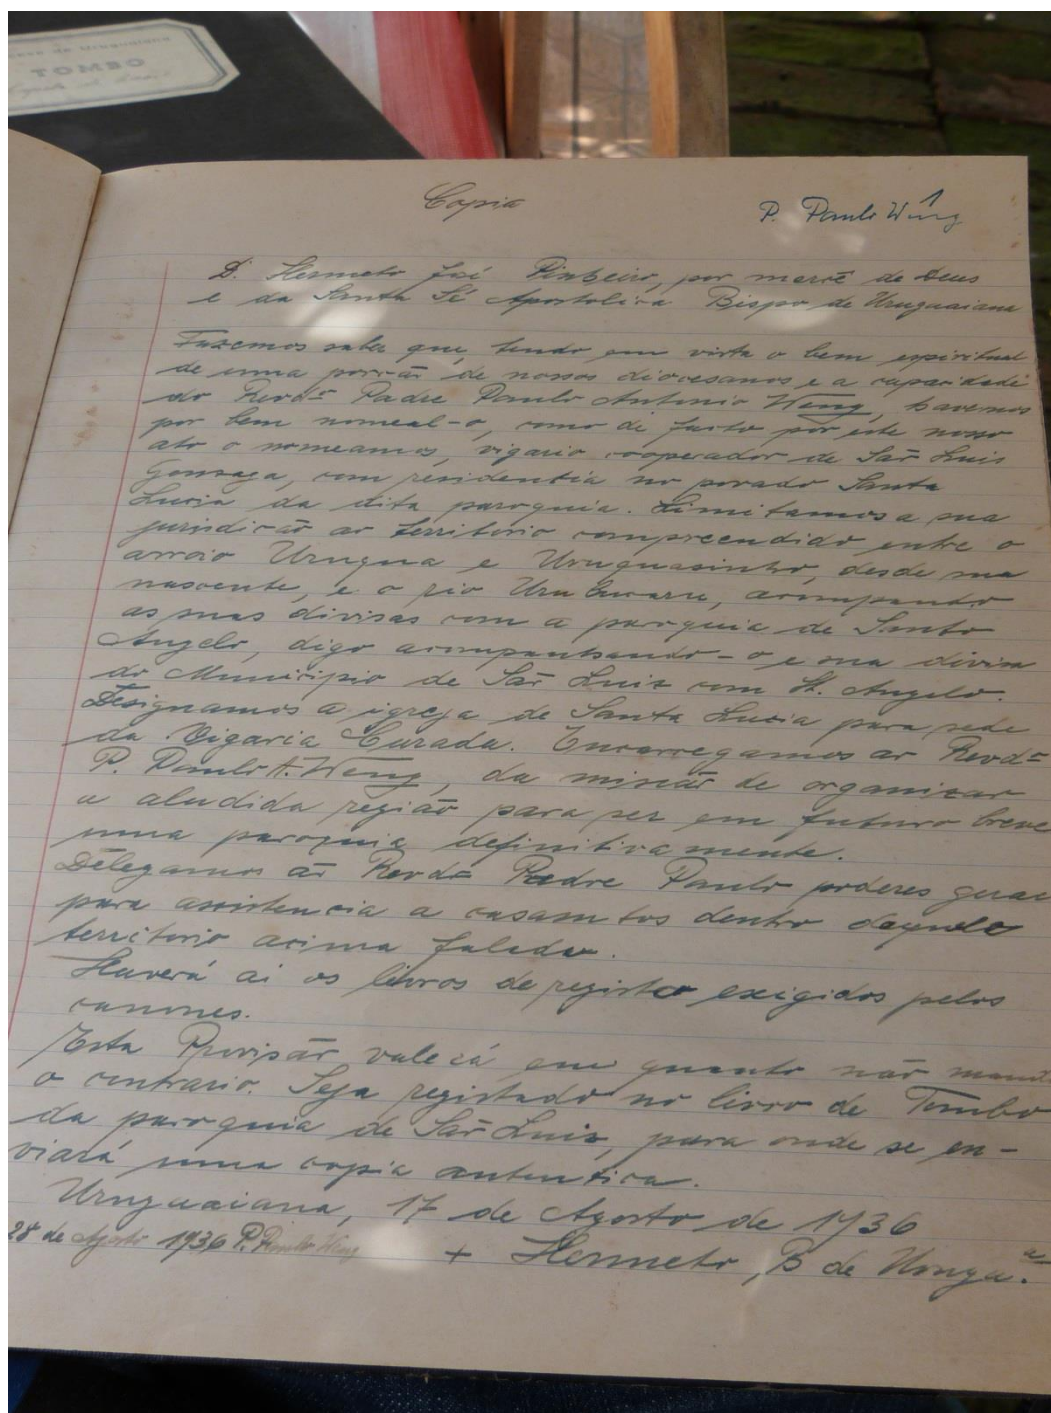 de Uruguaiana
TOMBO
Copia
P. Paulo Wing
D. Hermeto José Pinheiro, por mercê de Deus
e da Santa Sé Apostolica Bispo de Uruguaiana
Fazemos saber que, tendo em vista o bem espiritual
de uma porcão de nossos diocesanos e a capacidade
do Revdº Padre Paulo Antonio Weng, havemos
por bem nomeal-o, como de facto por este nosso
ato o nomeamos, vigario cooperador de São Luis
Gonzaga, com residentia no povado Santa
Lucia da dita paroquia. Limitamos a sua
jurisdicão ao territorio compreendido entre o
arroio Urugua e Uruguasinho, desde sua
nascente, e o rio
as suas divisas com a paroquia de Santo
Angelo, digo acompanhando-o e sua divisa
do Municipio de São Luis com St. Angelo.
Designamos a igreja de Santa Lucia para sede
da Vigaria Curada. Encarregamos ao Revdº
P. Paulo A. Weng, da missão de organisar
a aludida região para ser em futuro breve
uma paroquia definitivamente.
Delegamos ao Revdº Padre Paulo poderes gerae
para assistencia a casamtos dentro daquele
territorio acima falado.
Haverá ai os livros de registo exigidos pelos
canones.
Esta Provisão valerá em quanto não
o contrario. Seja registado no livro de Tombo
da paroquia de São Luis, para onde se en-
viará uma copia autentica.
Uruguaiana, 17 de Agosto de 1936
28 de Agosto 1936 P. Paulo Weng
+ Hermeto, B de Urugu.ª